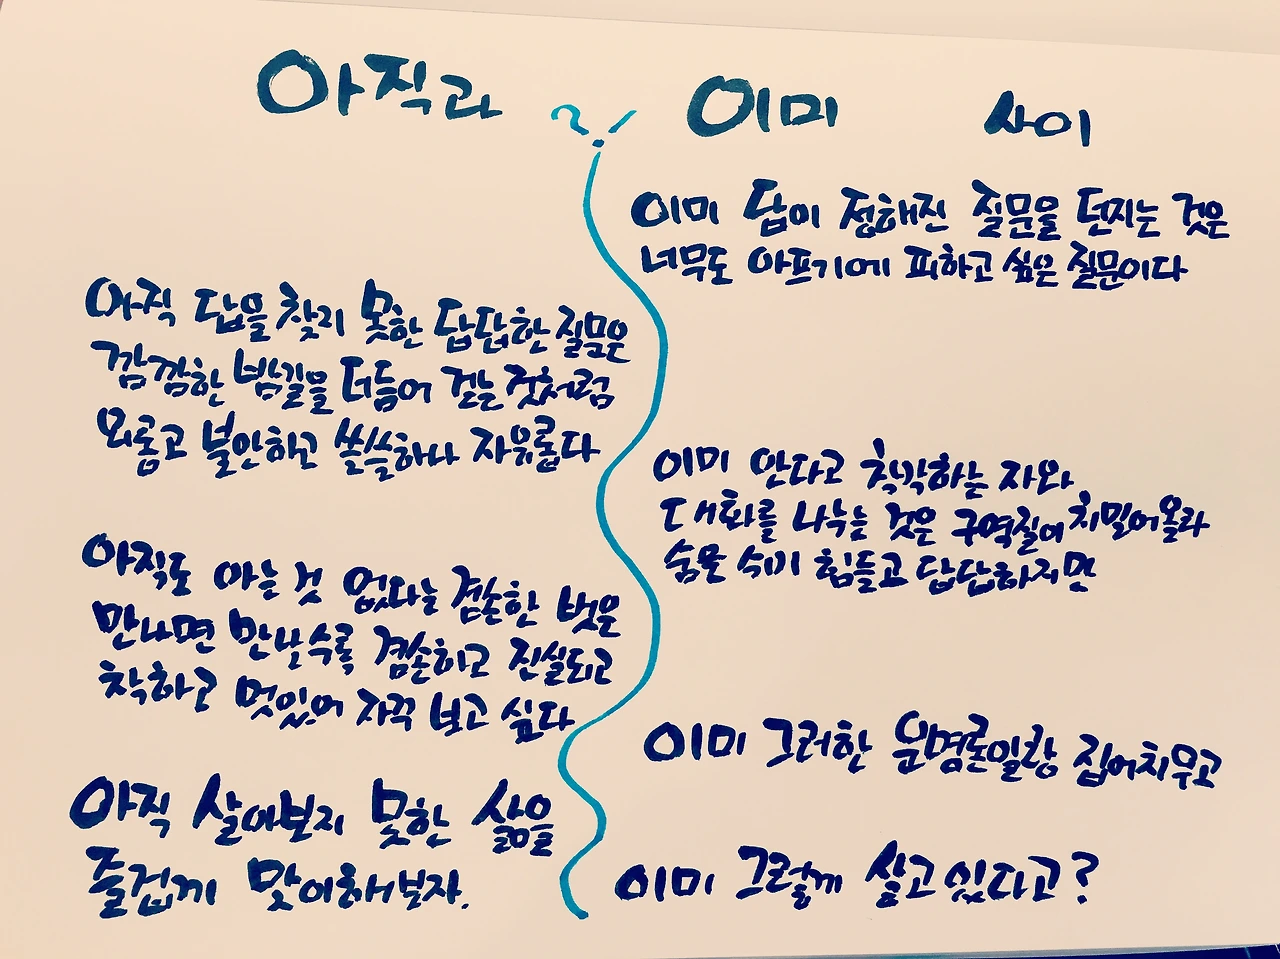 아직과 ?! 이미 사이
이미 답이 정해진 질문을 던지는 것은
너무도 아프기에 피하고 싶은 질문이다
아직 답을 찾지 못한 답답한 질문은
깜깜한 밤길을 더듬어 걷는 것처럼
외롭고 불안하고 쓸쓸하나 자유롭다
이미 안다고 착각하는 자와
대화를 나누는 것은 구역질이 치밀어올라
숨을 쉬기 힘들고 답답하지만
아직도 아는 것 없다는 겸손한 벗은
만나면 만날수록 겸손하고 진실되고
착하고 멋있어 자꾸 보고 싶다
이미 그러한 운명론일랑 집어치우고
아직 살아보지 못한 삶을
즐겁게 맞이해보자.
이미 그렇게 살고 있다고?